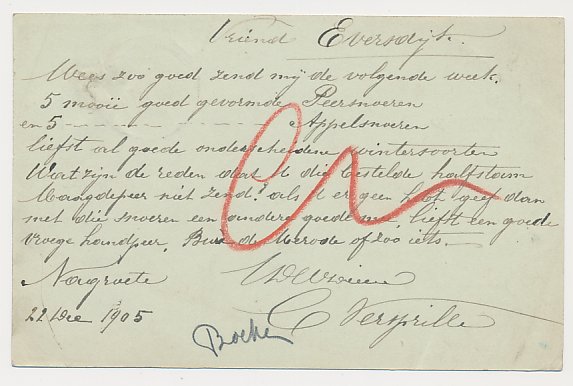 Vriend Eversdijk.
Wees zoo goed zend mij de volgende week.
5 mooie goed gevormde Peersnoeren
en 5 — — — — Appelsnoeren
liefst al goede onderscheidene wintersoorten
Wat zijn de reden dat U die bestelde halfstam
Maagdepeer niet zend? als U er geen hebt geef dan
met die snoeren een andere goede me, liefst een goede
vroege handpeer, Buré de Merode of zoo iets.
Na groete
22 Dec 1905 C Versprille
Boeken